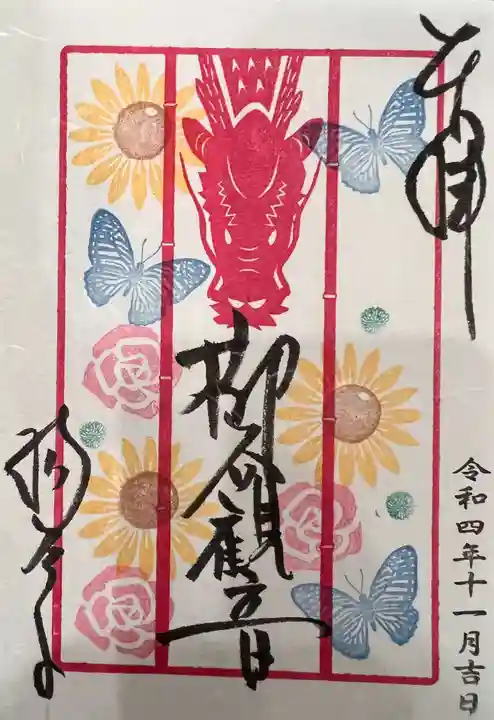 奉拝
令和四年十一月吉日
柳谷観音
楊谷寺